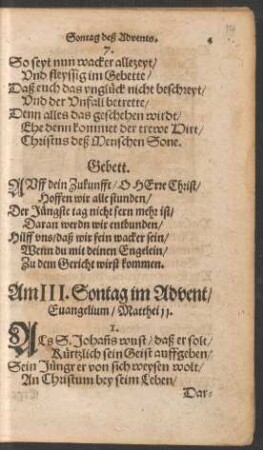 Sontag deß Advents.
7.
So seyt nun wacker allezeyt/
Vnd fleyssig im Gebette/
Daß euch das vnglück nicht beschreyt/
Vnd der Vnfall betrette/
Denn alles das geschehen wirdt/
Ehe denn kommet der trewe Hirt/
Christus deß Menschen Sone.
Gebett.
AVff dein Zukunfft/ O HErre Christ/
Hoffen wir alle stunden/
Der Jüngste tag nicht fern mehr ist/
Daran werdn wir entbunden/
Hilff vns/ daß wir fein wacker sein/
Wenn du mit deinen Engelein/
Zu dem Gericht wirst kommen.
Am III. Sontag im Advent/
Euangelium/ Matthei 11.
1.
ALs S. Johañs wust/ daß er solt/
Kürtzlich sein Geist auffgeben/
Sein Jünger er von sich weysen wolt/
An Christum bey seim Leben/
Dar-